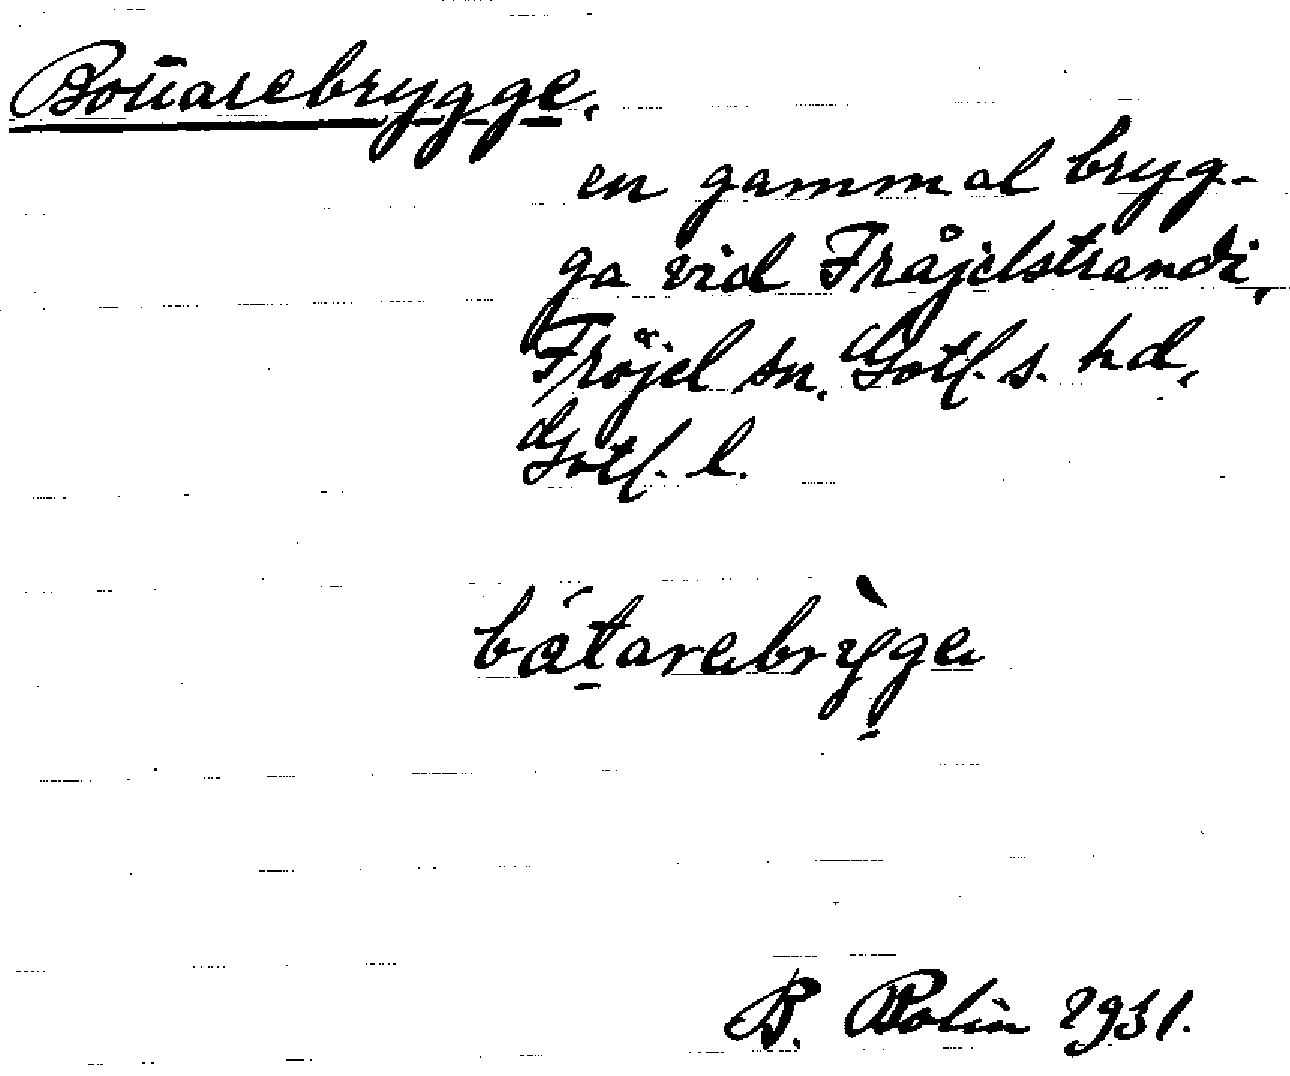 Bottarebrygge.
en gammal bryg-
ga vid Fråjelstrandi,
Fröjel sn. Gotl. s. hd,
Gotl. l.
båtarebrỳge
B. Bolin 1931.